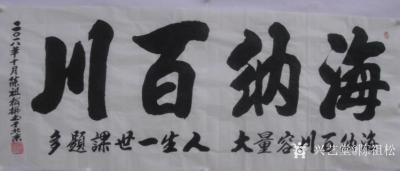 海纳百川
海纳百川容量大 人生一世課題多
二〇一八年十月陈祖松撰书于北京
兴艺堂@陈祖松